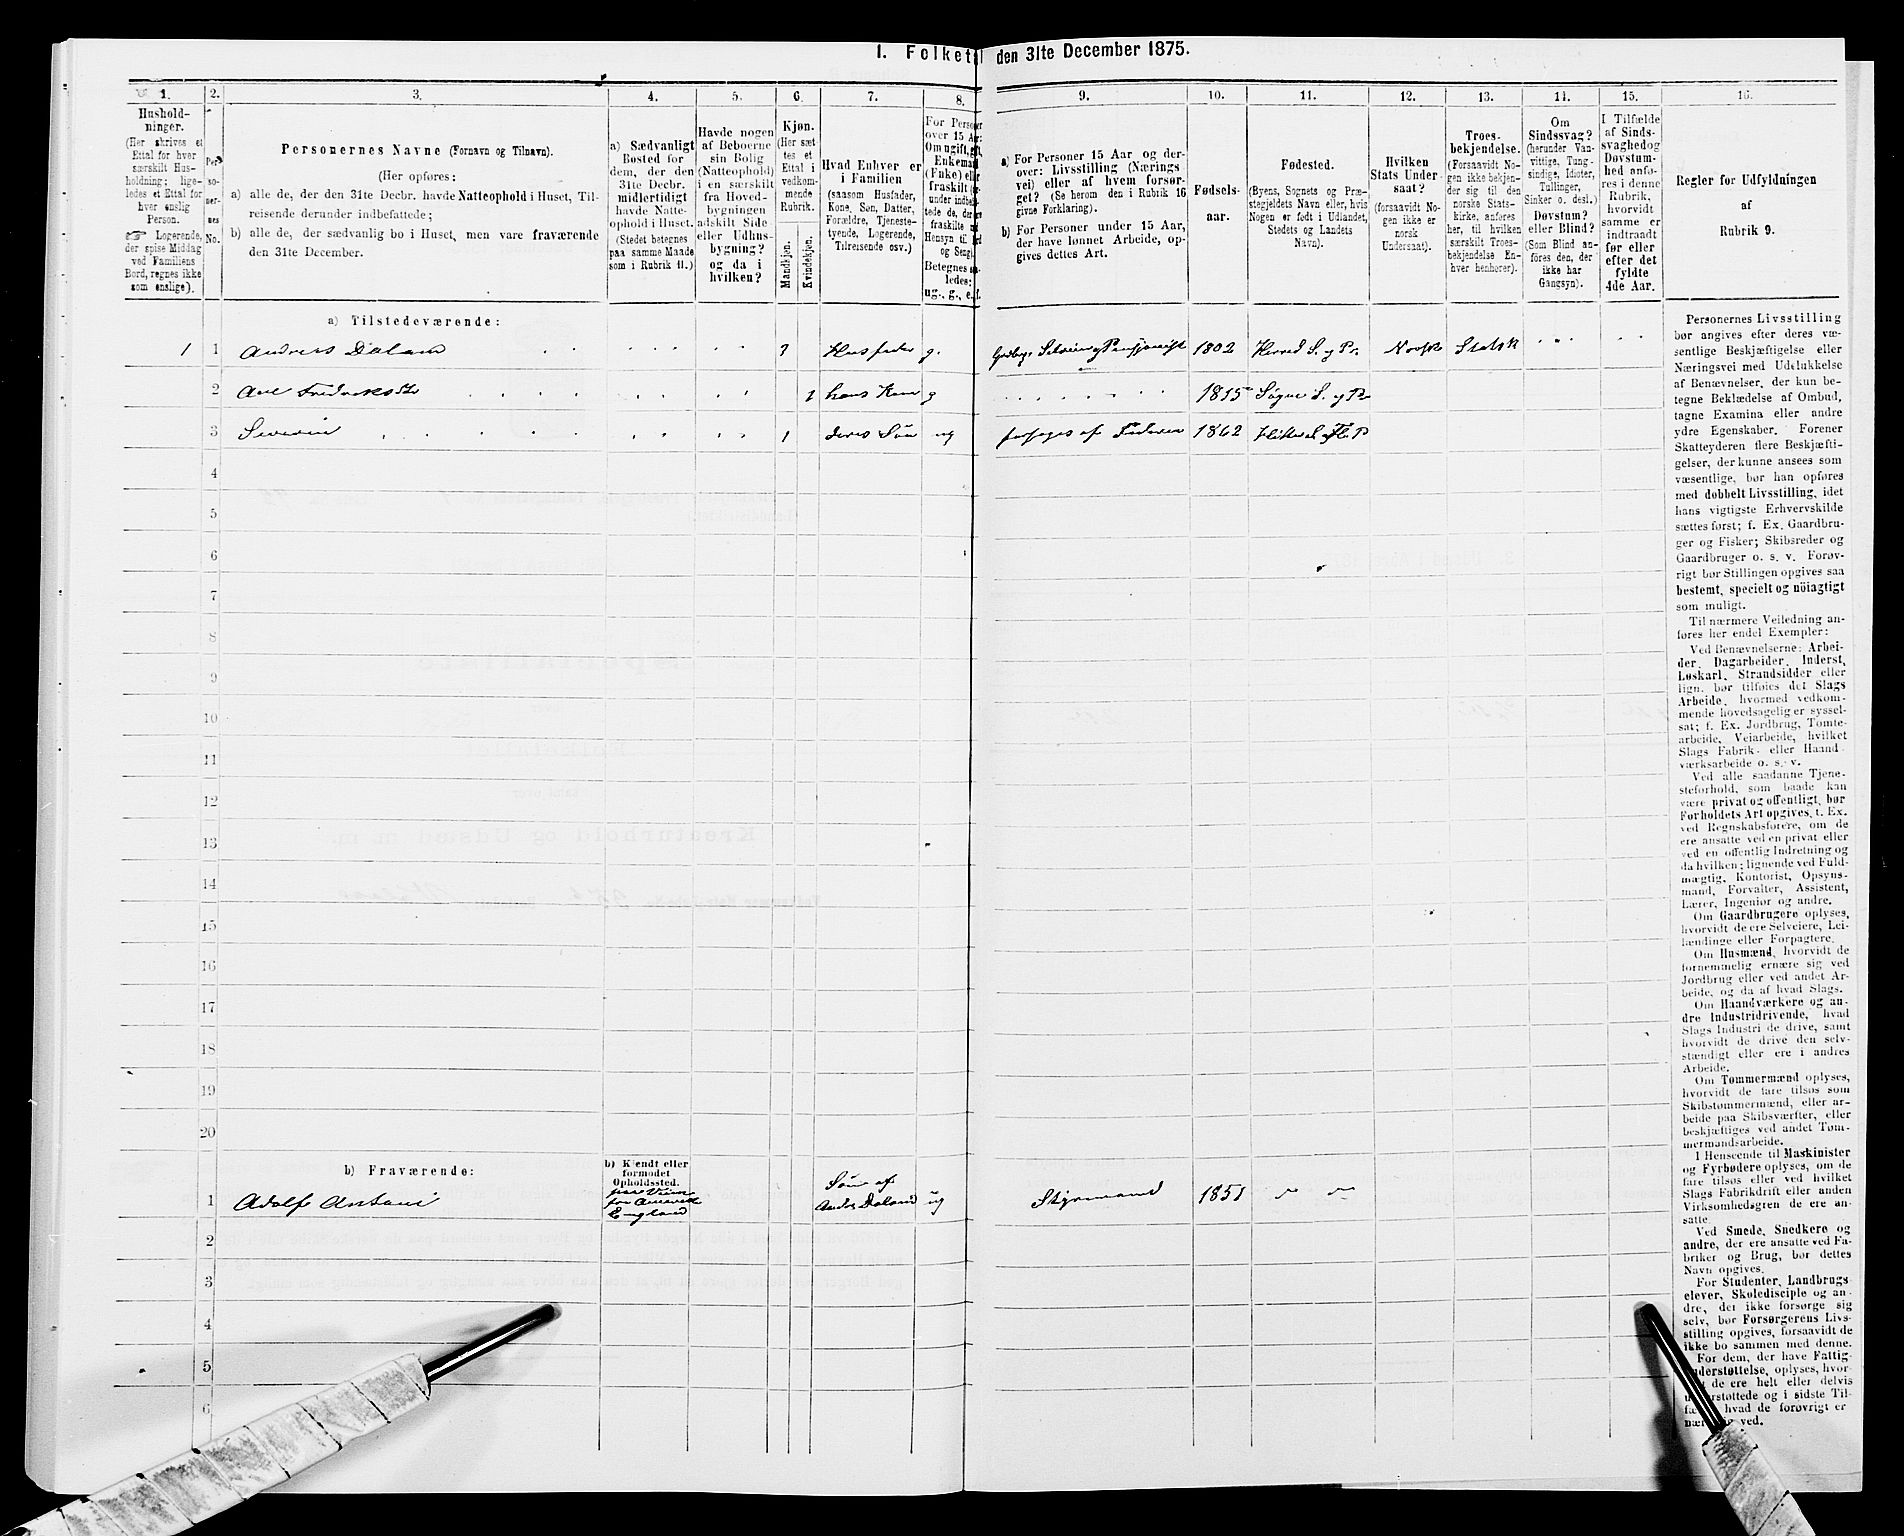 I. Folketal den 31te December 1875.
1. 2. 3. 4. 5. 6. 7. 8. 9. 10. 11. 12. 13. 14. 15. 16.
Hushold-
ninger.
(Her skrives et
Ettal for hver
særskilt Hus-
holdning; lige-
ledes et Ettal for
hver enslig
Person.
Logerende,
der spise Middag
ved Familiens
Bord, regnes ikke
som enslige).
Per-
so-
ner-
nes
No.
Personernes Navne (Fornavn og Tilnavn).
(Her opføres:
a) alle de, der den 31te Decbr. havde Natteophold i Huset, Til-
reisende derunder indbefattede;
b) alle de, der sædvanlig bo i Huset, men vare fraværende
den 31te December.
a) Sædvanligt
Bosted for
dem, der den
31te Decbr.
midlertidigt
havde Natte-
ophold i Huset.
(Stedet betegnes
paa samme Maade
som i Rubrik 11.)
Havde nogen
af Beboerne
sin Bolig
(Natteophold)
i en særskilt
fra Hoved-
bygningen
adskilt Side
eller Udhus-
bygning?
og da i
hvilken?
Kjøn.
(Her sæt-
tes et
Ettal i
vedkom-
mende
Rubrik.
Mandkjøn.
Kvindekjøn.
Hvad Enhver er
i Familien
(saasom Husfader,
Kone, Søn, Datter,
Forældre, Tjeneste-
tyende, Logerende,
Tilreisende osv.)
For Personer
over 15 Aar:
Om ugift, gift,
Enkemand
(Enke) eller
fraskilt
a) For Personer 15 Aar og der-
over: Livsstilling (Nærings-
vei) eller af hvem forsør-
get? (Se herom den i Rubrik 16
givne Forklaring).
b) For Personer under 15 Aar,
der have lønnet Arbeide, op-
gives dettes Art.
Fødsels-
aar.
Fødested.
(Byens, Sognets og Præ-
stegjeldets Navn eller, hvis
Nogen er født i Udlandet,
Stedets og Landets
Navn).
Hvilken
Stats Under-
saat?
(forsaavidt No-
gen ikke er
norsk
Undersaat).
Troes-
bekjendelse.
(Forsaavidt No-
gen ikke bekjen-
der sig til den
norske Stats-
kirke, anføres
her, til hvilken
særskilt Troes-
bekjendelse En-
hver henhører).
Om
Sindssvag?
(herunder Van-
vittige, Tung-
sindige, Idioter,
Tullinger,
Sinker o. desl.)
Døvstum?
eller Blind?
(Som Blind an-
føres den, der
ikke har
Gangsyn).
I Tilfælde
af Sinds-
svaghed og
Døvstum-
hed anfø-
res i denne
Rubrik,
hvorvidt
samme er
indtraadt
før eller
efter det
fyldte
4de Aar.
Regler for Udfyldningen
af
Rubrik 9.
a) Tilstedeværende:
1 1 Andreas Daland 1 Husfader g. Gaardbr. Selveier og Pensjonist 1802 Herred S. og Pr. Norsk Statsk
2 Ane Fredriksdt 1 hans Kone g 1815 Søgne S. og Pr
3 Severin 1 deres Søn ug forsørges af Faderen 1862
4
5
6
7
8
9
10
11
12
13
14
15
16
17
18
19
20
b) Fraværende:
b) Kjendt eller
formodet
Opholdssted.
1 Adolf Antoni England Søn af Anders Daland ug Styrmand 1851
2
3
4
5
6
Personernes Livsstilling
bør angives efter deres væ-
sentlige Beskjæftigelse eller
Næringsvei med Udelukkelse
af Benævnelser, der kun be-
tegne Beklædelse af Ombud,
tagne Examina eller andre
ydre Egenskaber. Forener
Skatteyderen flere Beskjæfti-
gelser, der kunne ansees som
væsentlige, bør han opføres
med dobbelt Livsstilling, idet
hans vigtigste Erhvervskilde
sættes først; f. Ex. Gaardbru-
ger og Fisker; Skibsreder og
Gaardbruger o. s. v. Forøv-
rigt bør Stillingen opgives saa
bestemt, specielt og nöiagtigt
som muligt.
Til nærmere Veiledning an-
føres her endel Exempler:
Ved Benævnelserne: Arbei-
der, Dagarbeider, Inderst,
Løskarl, Strandsidder eller
lign. bør tilføies det Slags
Arbeide, hvormed vedkom-
mende hovedsagelig er syssel-
sat; f. Ex. Jordbrug, Tomte-
arbeide, Veiarbeide, hvilket
Slags Fabrik- eller Haand-
værksarbeide o. s. v.
Ved alle saadanne Tjene-
steforhold, som baade kan
være privat og offentligt, bør
Forholdets Art opgives, t. Ex.
ved Regnskabsførere, om de
ere ansatte ved en privat eller
ved en offentlig Indretning og
da hvilken; lignende ved Fuld-
mægtig, Kontorist, Opsyns-
mand, Forvalter, Assistent,
Lærer, Ingeniør og andre.
Om Gaardbrugere oplyses,
hvorvidt de ere Selveiere, Lei-
lændinge eller Forpagtere.
Om Husmænd, hvorvidt de
fornemmelig ernære sig ved
Jordbrug eller ved andet Ar-
beide, og da af hvad Slags.
Om Haandværkere og an-
dre Industridrivende, hvad
Slags Industri de drive, samt
hvorvidt de drive den selv-
stændigt eller ere i andres
Arbeide.
Om Tømmermænd oplyses,
hvorvidt de fare tilsøs som
Skibstømmermænd, eller ar-
beide paa Skibsværfter, eller
beskjæftiges ved andet Tøm-
mermandsarbeide.
I Henseende til Maskinister
og Fyrbødere oplyses, om de
fare tilsøs eller ved hvilket
Slags Fabrikdrift eller anden
Virksomhedsgren de ere an-
satte.
Ved Smede, Snedkere og
andre, der ere ansatte ved Fa-
briker og Brug, bør dettes
Navn opgives.
For Studenter, Landbrugs-
elever, Skoledisciple og an-
dre, der ikke forsørge sig
selv, bør Forsørgerens Livs-
stilling opgives, forsaavidt de
ikke bo sammen med denne.
For dem, der have Fattig-
understøttelse, oplyses, hvor-
de ere helt eller delvis
understøttede og i sidste Til-
hvad de forøvrigt er
ved.